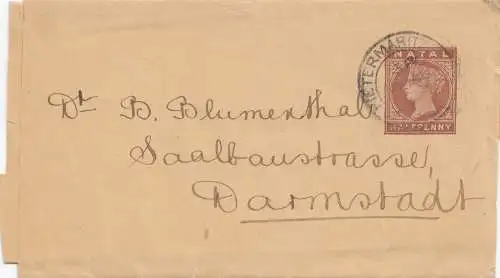 PIETERMARIT
NATAL
HALFPENNY
Dr. B. Blumenthal
Saalbaustrasse,
Darmstadt